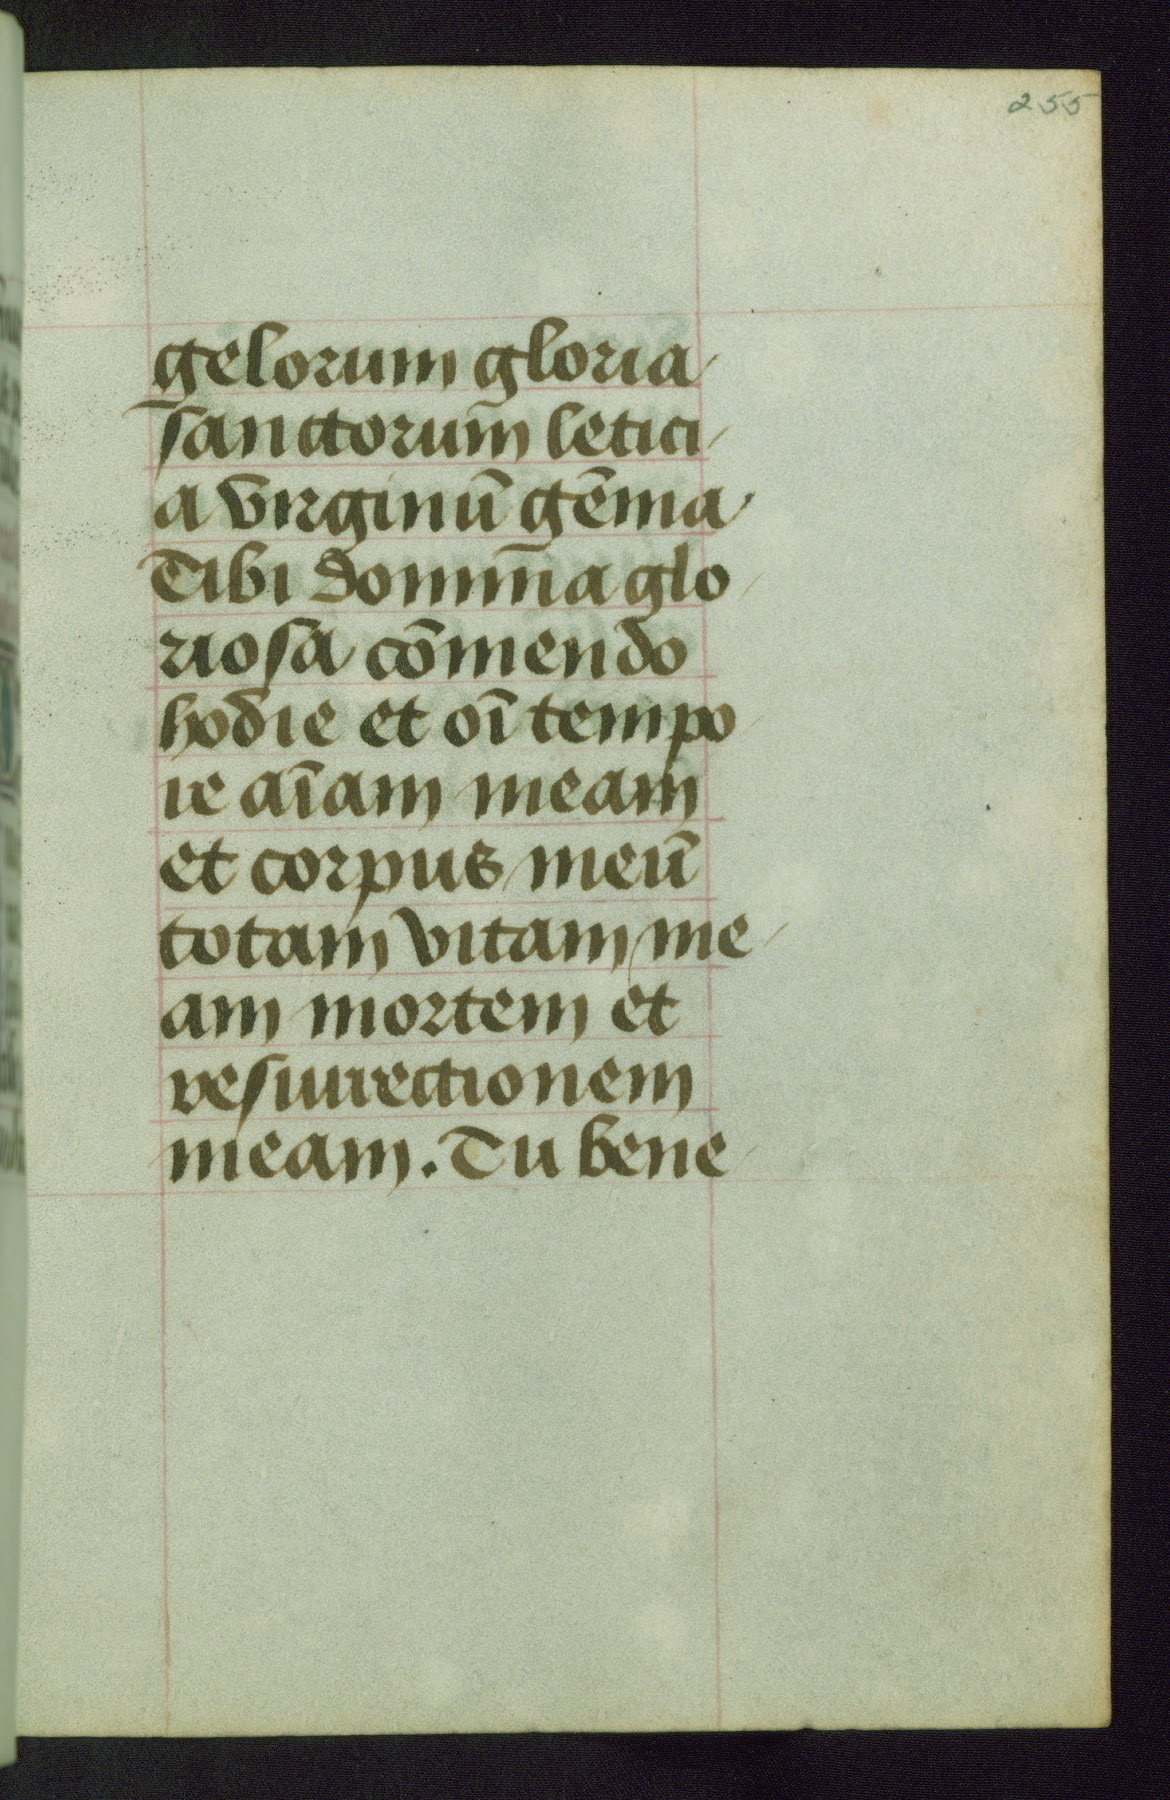 255
gelorum gloria
sanctorum̄ letici
a virginū gēma
Tibi domīna glo
riosa cōmendo
hodie et oī tempo
re aīam meam
et corpus meū
totam vitam me
am mortem et
resurrectionem
meam. Tu bene